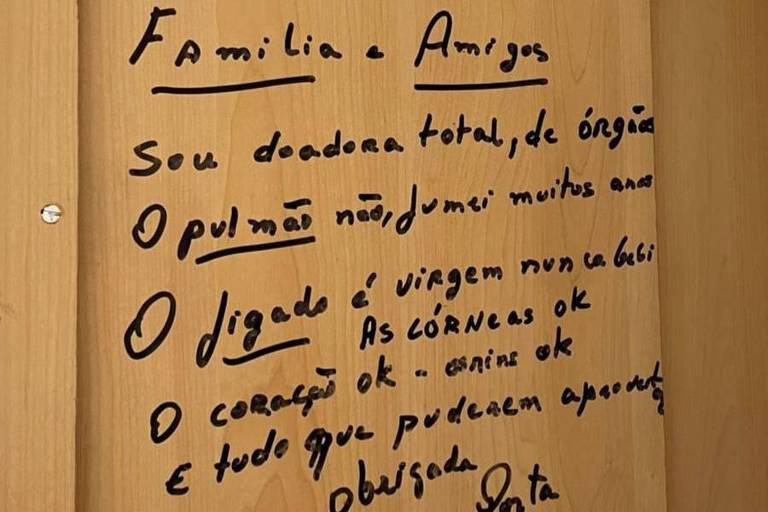 Familia e Amigos
Sou doadora total, de órgãos
O pulmão não, fumei muitos anos
O fígado é virgem nunca bebi
As córneas ok
O coração ok - ok
E tudo que puderem aproveita
Obrigada